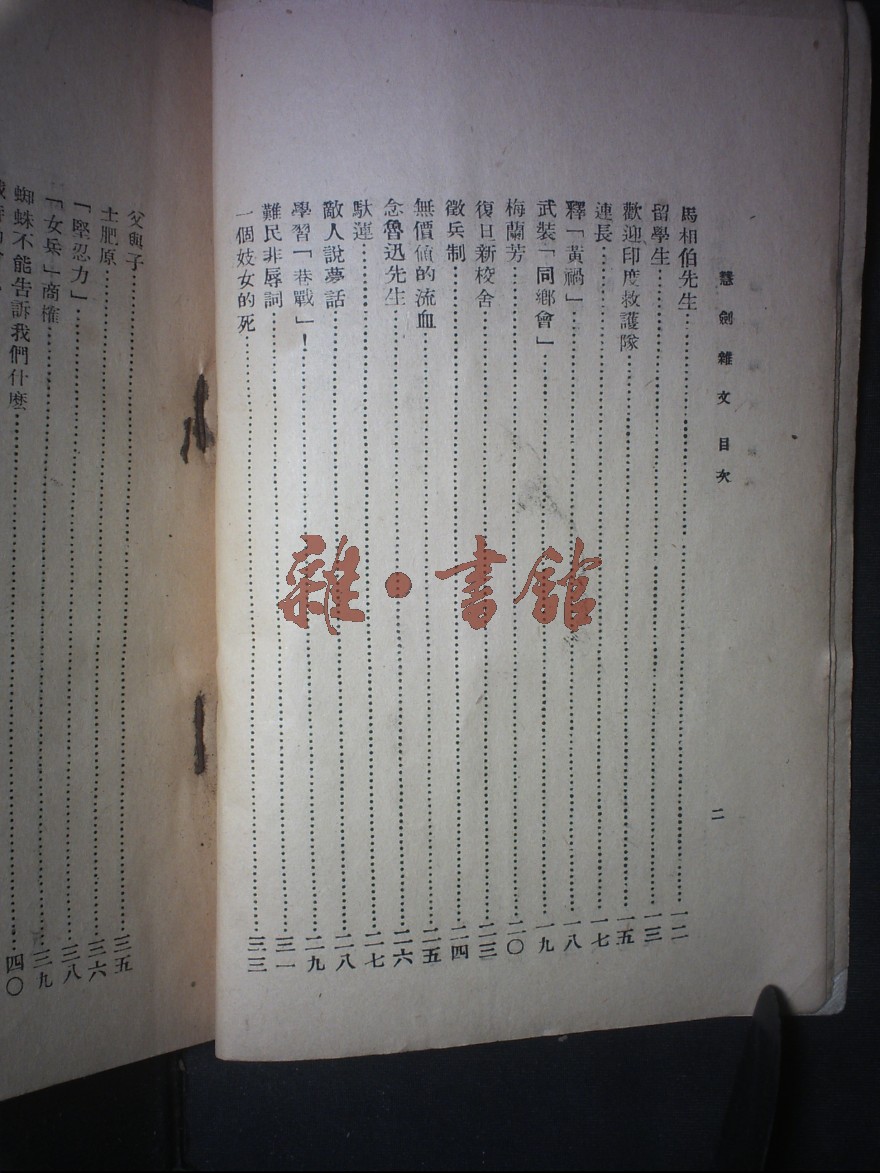 慧劍雜文 目次
二
馬相伯先生……一二
留學生……一三
歡迎印度救護隊……一五
連長……一七
釋「黃禍」……一八
武裝「同鄉會」……一九
梅蘭芳……二〇
復旦新校舍……二三
徵兵制……二四
無價值的流血……二五
念魯迅先生……二六
馱蓮……二七
敵人說夢話……二八
學習「巷戰」！……二九
難民非辱詞……三一
一個妓女的死……三三
父與子……三五
土肥原……三六
「堅忍力」……三八
「女兵」商榷……三九
蜘蛛不能告訴我們什麼……四〇
雜·書館